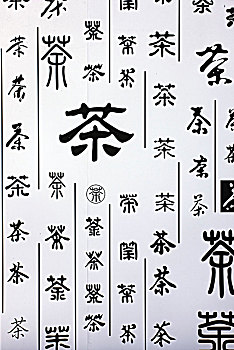 茶茶茶茶茶茶
茶茶茶
茶茶茶茶茶茶茶茶
茶茶茶茶茶茶
茶茶茶茶茶茶茶
茶
茶茶茶茶茶
茶茶茶茶茶茶茶